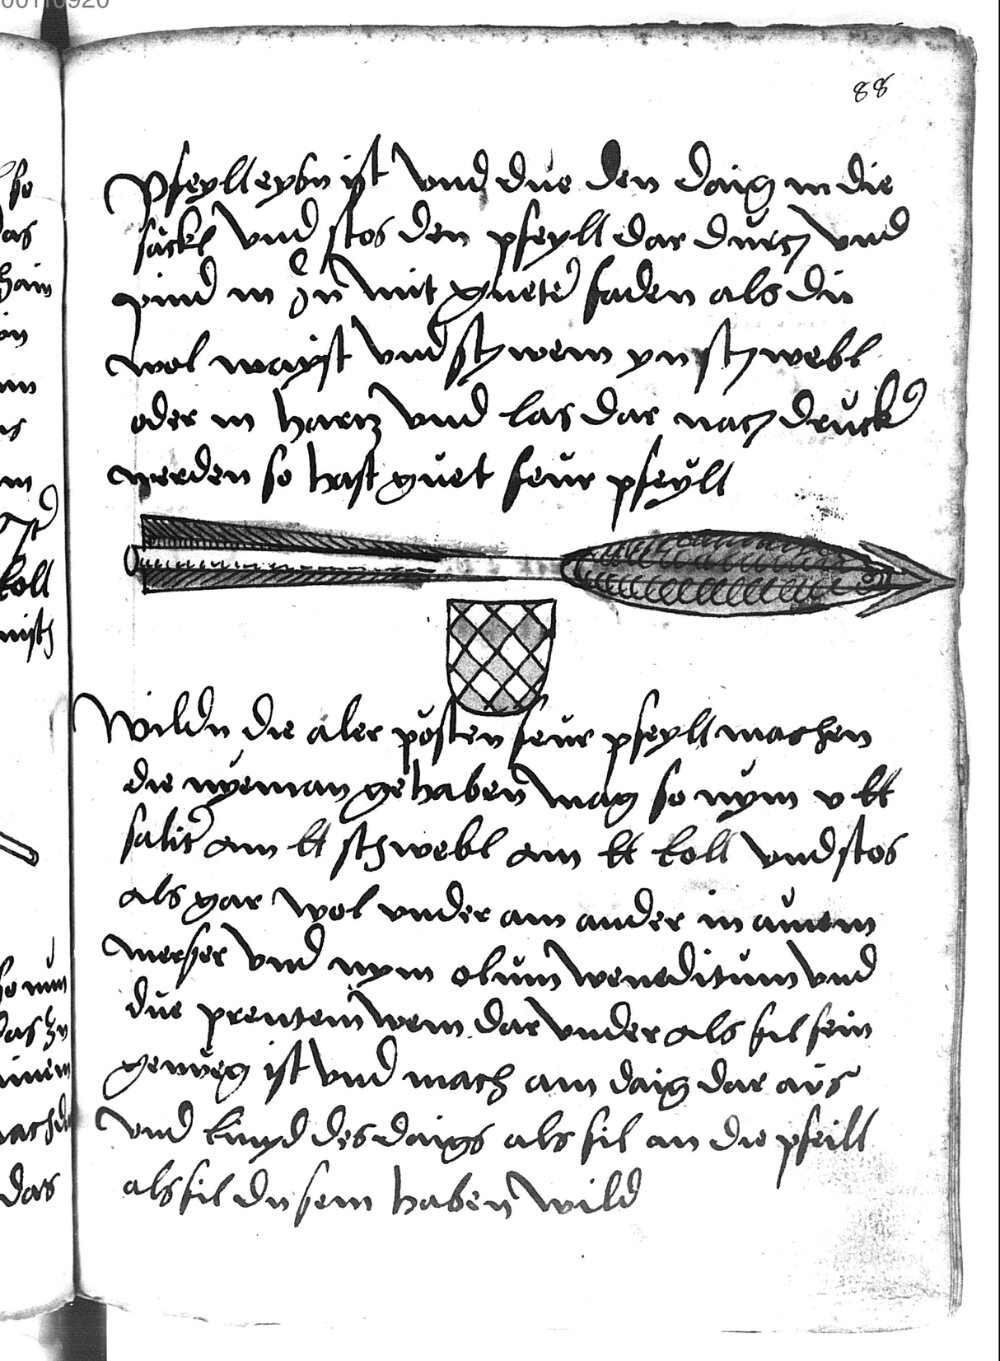 88
pfeylleysn ist vnd due den daig in die
säckl vnd stos den pfeyll dar durch vnd
pind in mit guetē faden als du
wol wayst vnd schwem yn schwebl
oder in hartz vnd las dar nach druckē
werden so hast guet feur pfeyll
Wildu die aler pösten feur pfeyll machen
die nyeman gehaben mag so nym v lt
salitē ain lt schwebl ain lt koll vnd stos
als gar wol vnder ain ander in ainem
merser vnd nym olium weneditum vnd
due prenten wein dar vnder als fil sein
genueg ist vnd mach ain daig dar aus
vnd des daigs als fil an die pfeill
als fil du sein haben wild